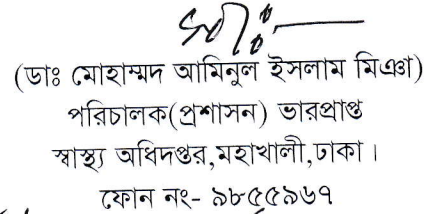 (ডাঃ মোহাম্মদ আমিনুল ইসলাম মিঞা)
পরিচালক(প্রশাসন) ভারপ্রাপ্ত
স্বাস্থ্য অধিদপ্তর,মহাখালী,ঢাকা।
ফোন নং- ৯৮৫৫৯৬৭